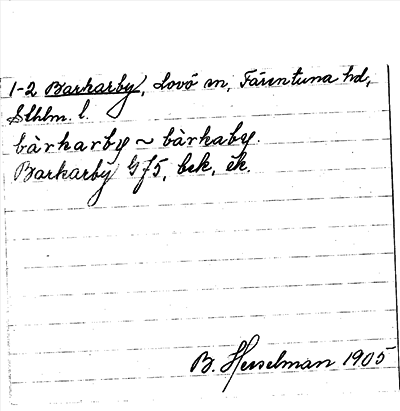 1-2 Barkarby, Lovö sn, Färentuna hd,
Sthlm. l.
bàrkarby ~ bàrkaby.
Barkarby Gf5, bek, ek.
B. Hesselman 1905